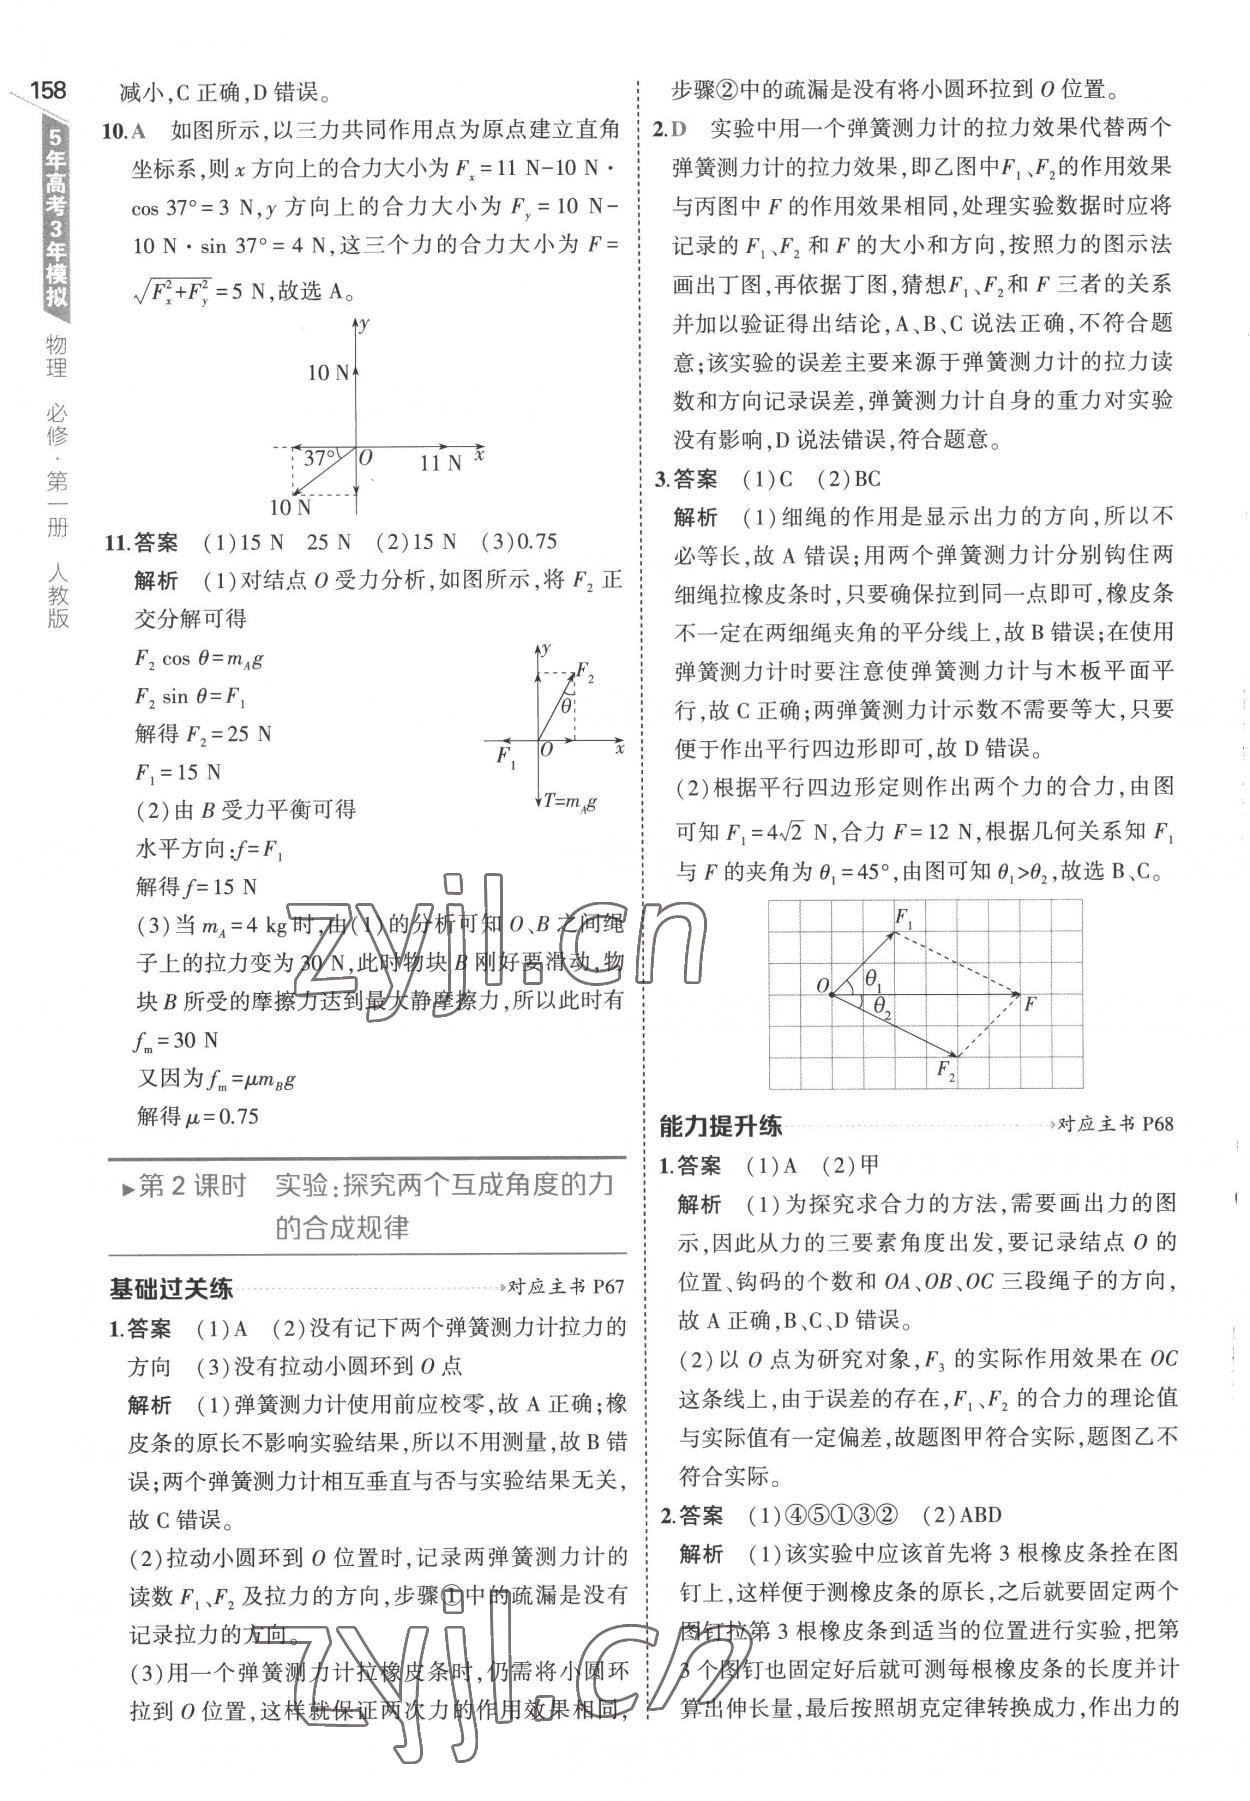 158
5年高考3年模拟
物理 必修·第一册 人教版
减小,C正确,D错误。
10.A 如图所示,以三力共同作用点为原点建立直角
坐标系,则x方向上的合力大小为Fₓ=11 N-10 N·
cos 37°=3 N,y方向上的合力大小为F_y=10 N-
10 N·sin 37°=4 N,这三个力的合力大小为F=
√(Fₓ²+F_y²)=5 N,故选A。
y
10 N
37°
O
11 N
x
10 N
11.答案 (1)15 N 25 N (2)15 N (3)0.75
解析 (1)对结点O受力分析,如图所示,将F₂正
交分解可得
F₂ cos θ=m_A g
F₂ sin θ=F₁
解得F₂=25 N
F₁=15 N
y
F₂
θ
F₁
O
x
T=m_A g
(2)由B受力平衡可得
水平方向:f=F₁
解得f=15 N
(3)当m_A=4 kg时,由(1)的分析可知O、B之间绳
子上的拉力变为30 N,此时物块B刚好要滑动,物
块B所受的摩擦力达到最大静摩擦力,所以此时有
f_m=30 N
又因为f_m=μm_B g
解得μ=0.75
第2课时 实验:探究两个互成角度的力
的合成规律
基础过关练 对应主书P67
1.答案 (1)A (2)没有记下两个弹簧测力计拉力的
方向 (3)没有拉动小圆环到O点
解析 (1)弹簧测力计使用前应校零,故A正确;橡
皮条的原长不影响实验结果,所以不用测量,故B错
误;两个弹簧测力计相互垂直与否与实验结果无关,
故C错误。
(2)拉动小圆环到O位置时,记录两弹簧测力计的
读数F₁、F₂及拉力的方向,步骤①中的疏漏是没有
记录拉力的方向。
(3)用一个弹簧测力计拉橡皮条时,仍需将小圆环
拉到O位置,这样就保证两次力的作用效果相同,
步骤②中的疏漏是没有将小圆环拉到O位置。
2.D 实验中用一个弹簧测力计的拉力效果代替两个
弹簧测力计的拉力效果,即乙图中F₁、F₂的作用效果
与丙图中F的作用效果相同,处理实验数据时应将
记录的F₁、F₂和F的大小和方向,按照力的图示法
画出丁图,再依据丁图,猜想F₁、F₂和F三者的关系
并加以验证得出结论,A、B、C说法正确,不符合题
意;该实验的误差主要来源于弹簧测力计的拉力读
数和方向记录误差,弹簧测力计自身的重力对实验
没有影响,D说法错误,符合题意。
3.答案 (1)C (2)BC
解析 (1)细绳的作用是显示出力的方向,所以不
必等长,故A错误;用两个弹簧测力计分别钩住两
细绳拉橡皮条时,只要确保拉到同一点即可,橡皮条
不一定在两细绳夹角的平分线上,故B错误;在使用
弹簧测力计时要注意使弹簧测力计与木板平面平
行,故C正确;两弹簧测力计示数不需要等大,只要
便于作出平行四边形即可,故D错误。
(2)根据平行四边形定则作出两个力的合力,由图
可知F₁=4√2 N,合力F=12 N,根据几何关系知F₁
与F的夹角为θ₁=45°,由图可知θ₁>θ₂,故选B、C。
F₁
O
θ₁
θ₂
F
F₂
能力提升练 对应主书P68
1.答案 (1)A (2)甲
解析 (1)为探究求合力的方法,需要画出力的图
示,因此从力的三要素角度出发,要记录结点O的
位置、钩码的个数和OA、OB、OC三段绳子的方向,
故A正确,B、C、D错误。
(2)以O点为研究对象,F₃的实际作用效果在OC
这条线上,由于误差的存在,F₁、F₂的合力的理论值
与实际值有一定偏差,故题图甲符合实际,题图乙不
符合实际。
2.答案 (1)④⑤①③② (2)ABD
解析 (1)该实验中应该首先将3根橡皮条拴在图
钉上,这样便于测橡皮条的原长,之后就要固定两个
图钉拉第3根橡皮条到适当的位置进行实验,把第
3个图钉也固定好后就可测每根橡皮条的长度并计
算出伸长量,最后按照胡克定律转换成力,作出力的
zyjl.cn
zyjl.cn